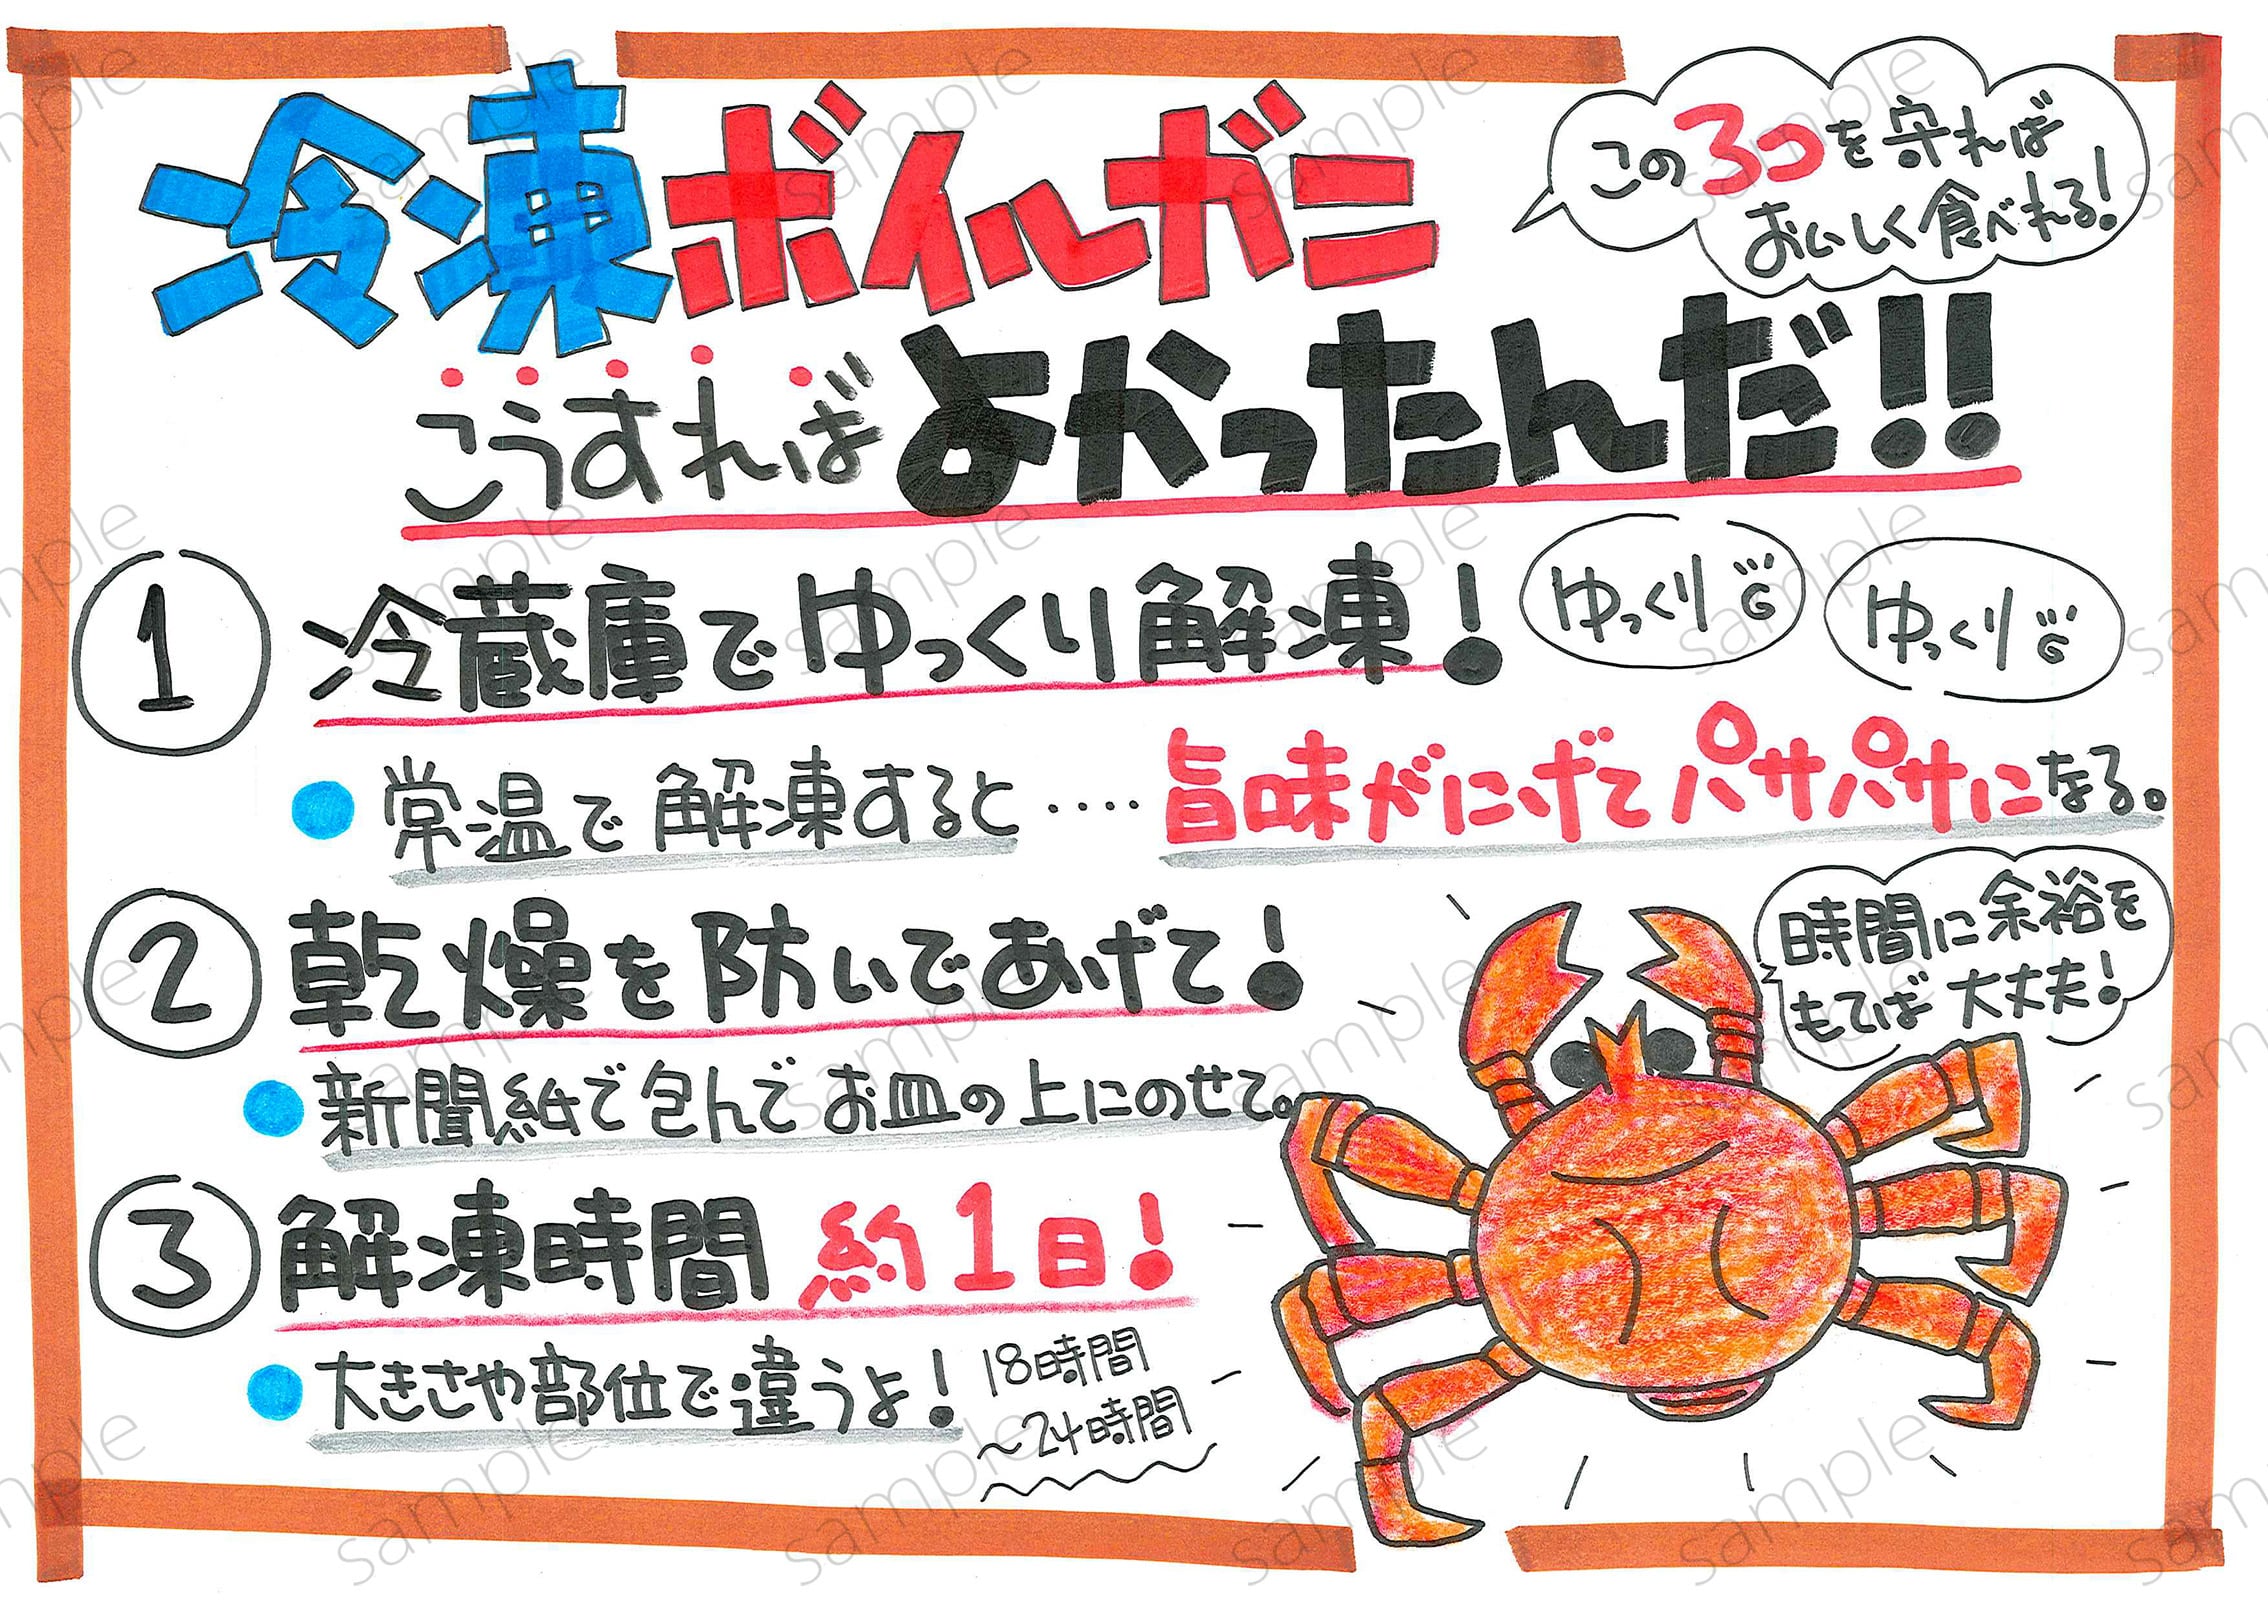 冷凍ボイルガニ
この3つを守れば
おいしく食べれる!
こうすればよかったんだ!!
1 冷蔵庫でゆっくり解凍!
ゆっくり〃
ゆっくり〃
常温で解凍すると‥‥旨味がにげてパサパサになる。
2 乾燥を防いであげて!
時間に余裕を
もてば大丈夫!
新聞紙で包んでお皿の上にのせて。
3 解凍時間 約1日!
大きさや部位で違うよ!
18時間
～24時間
sample